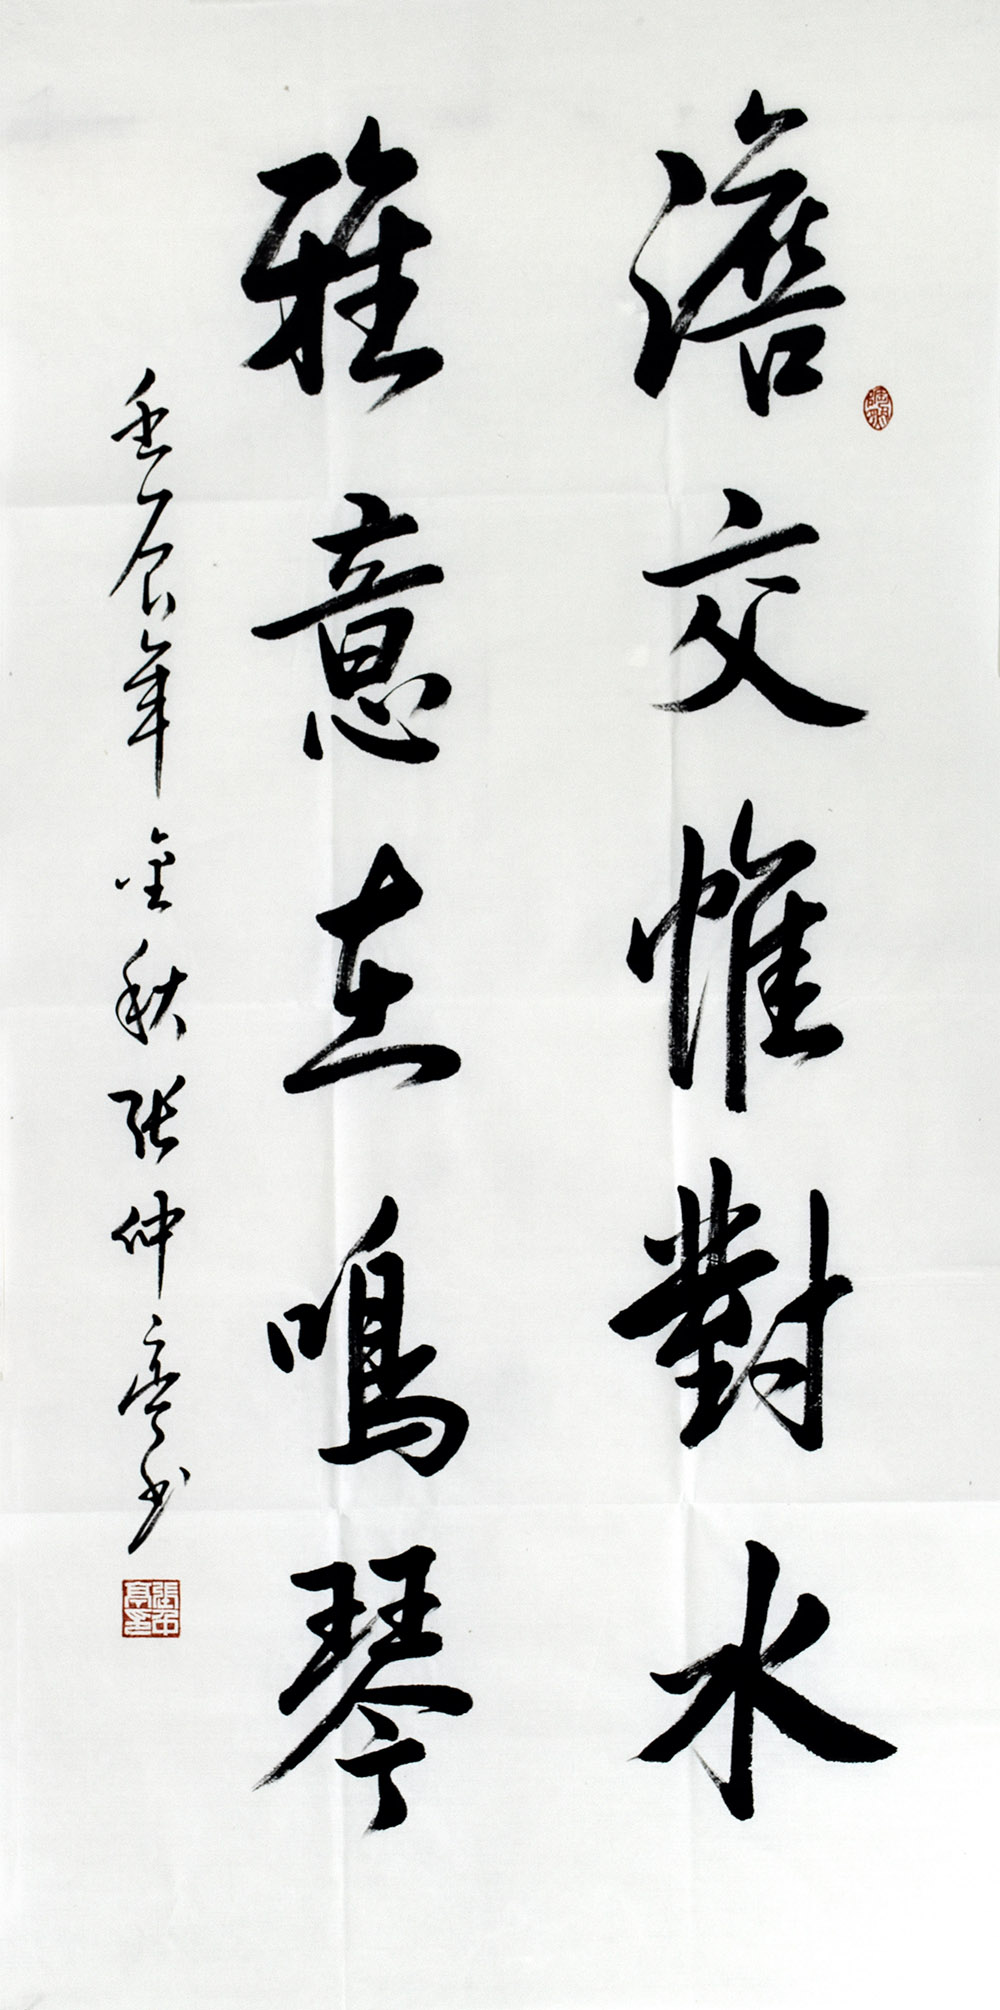 澹交惟對水
雅意在鳴琴
壬辰年金秋張仲亭書
張仲亭印